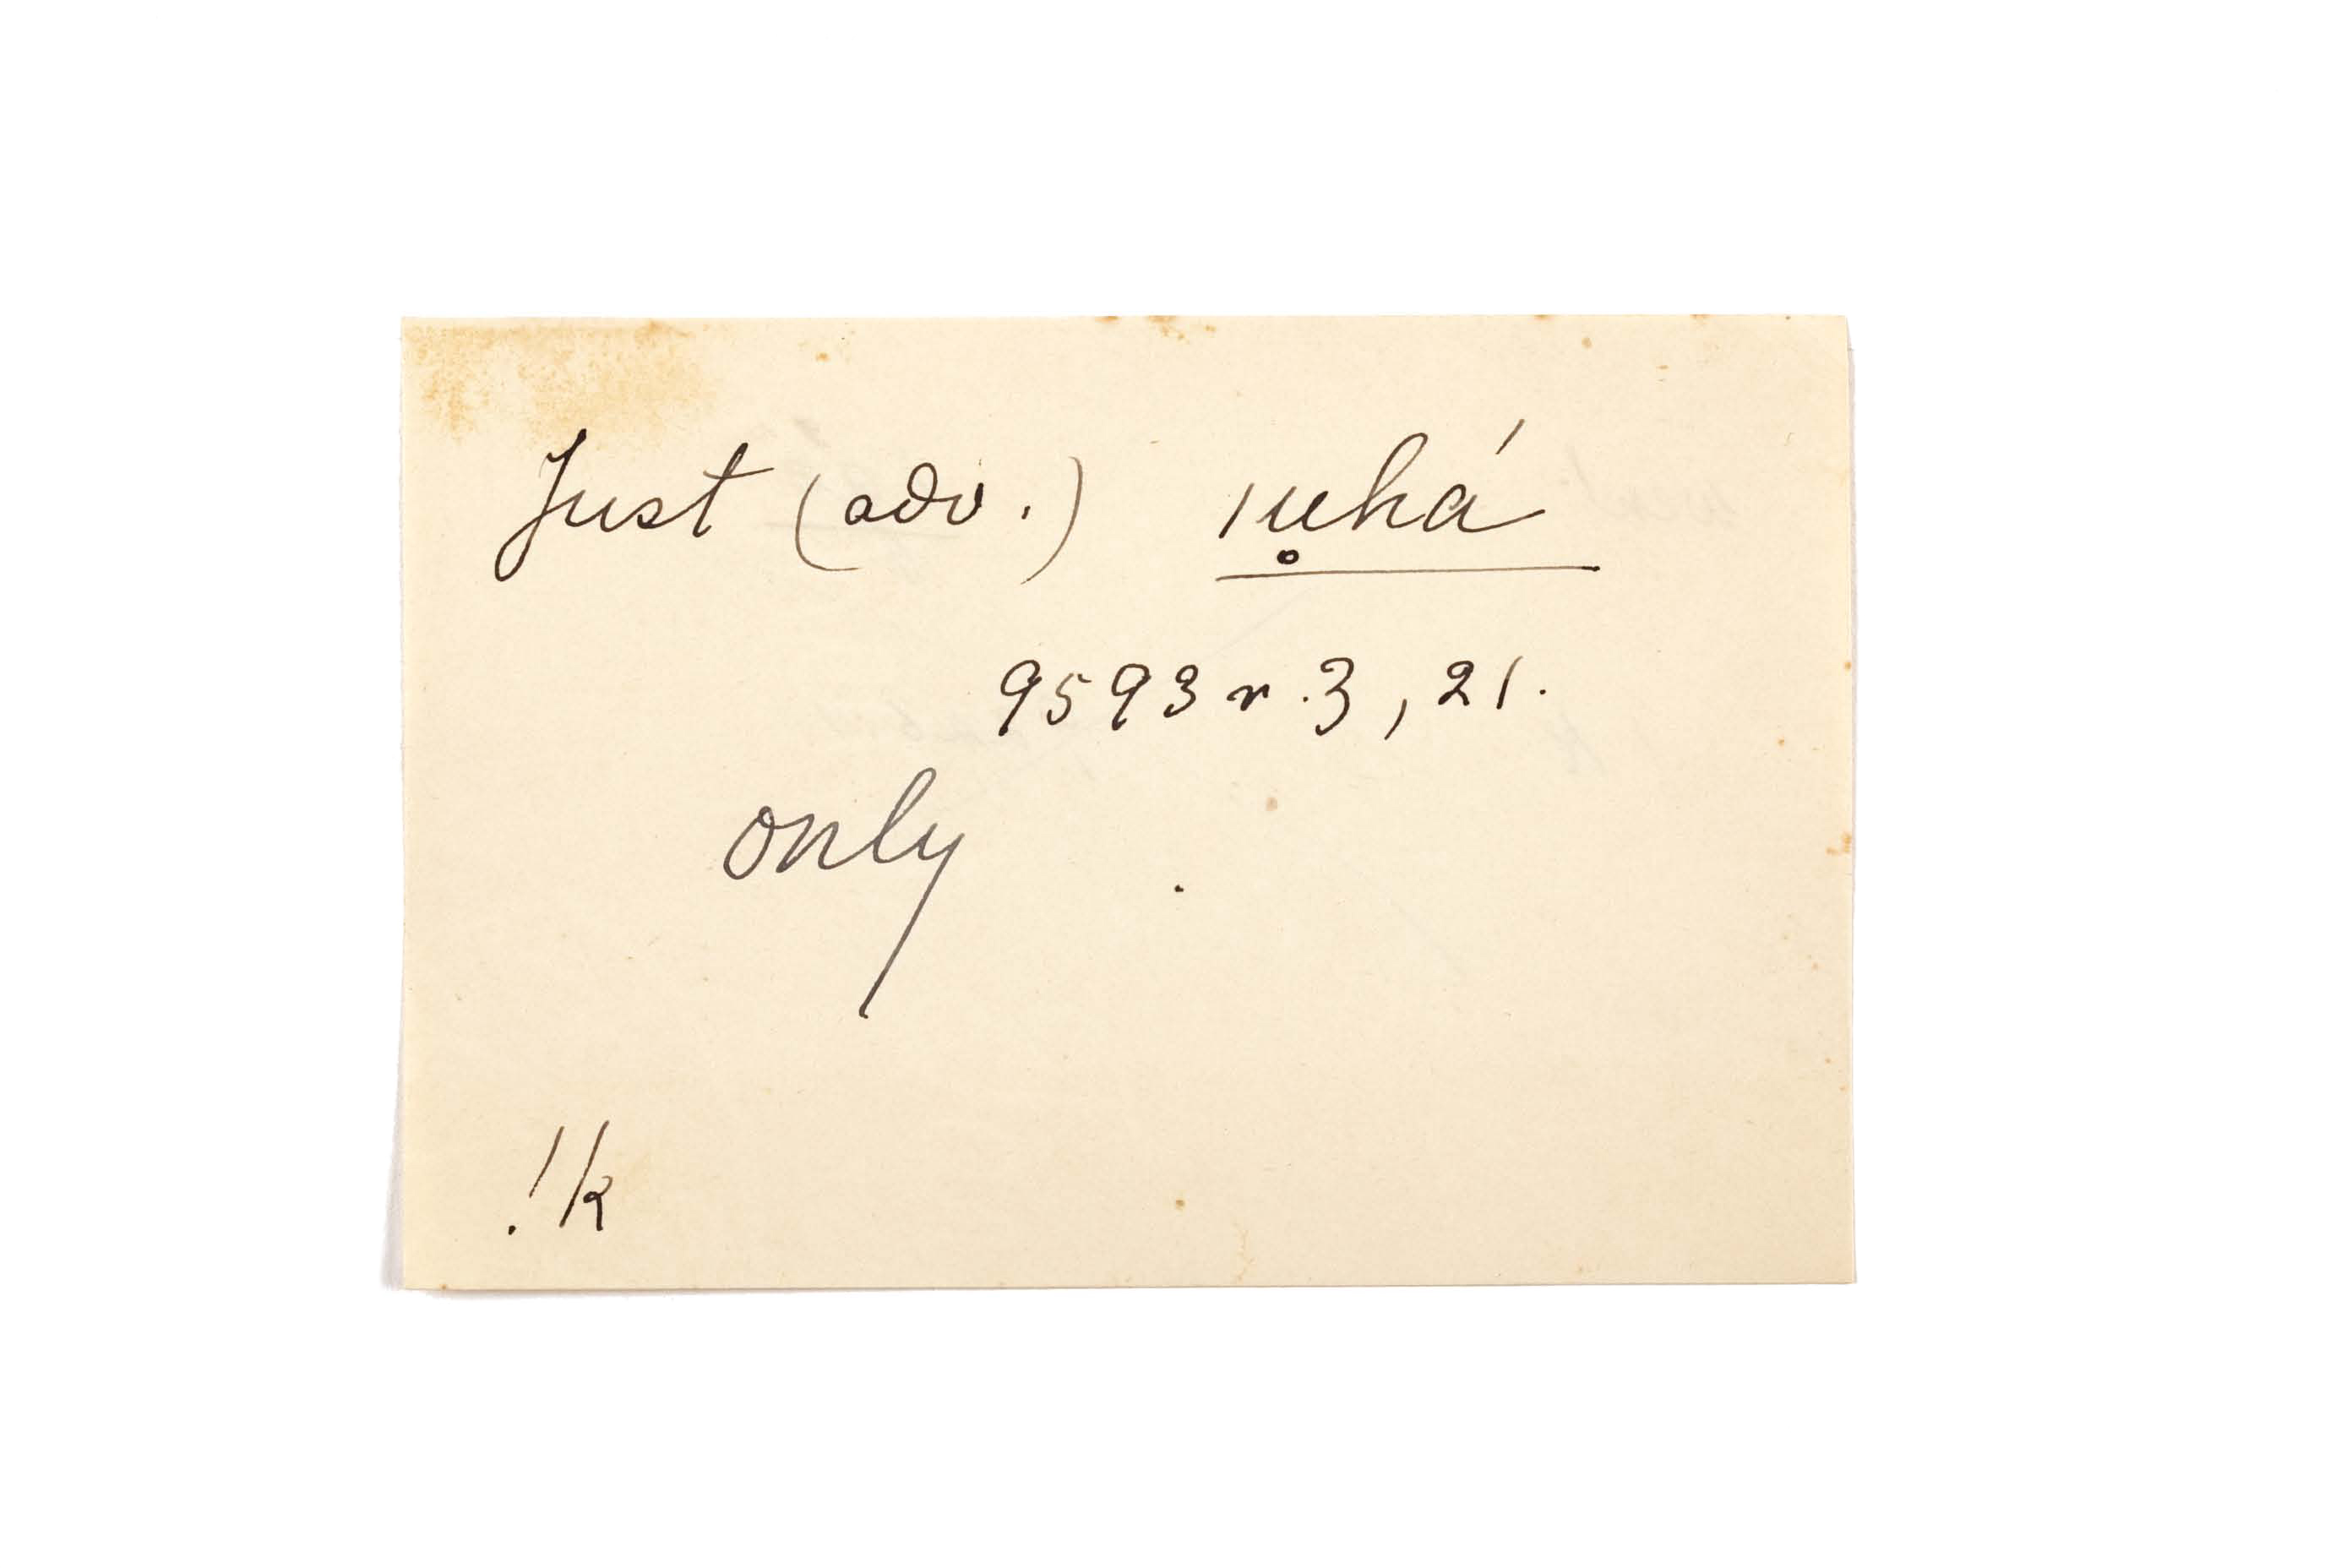 Just (adv.) ıu̥há
9593 r. 3, 21.
only
!k